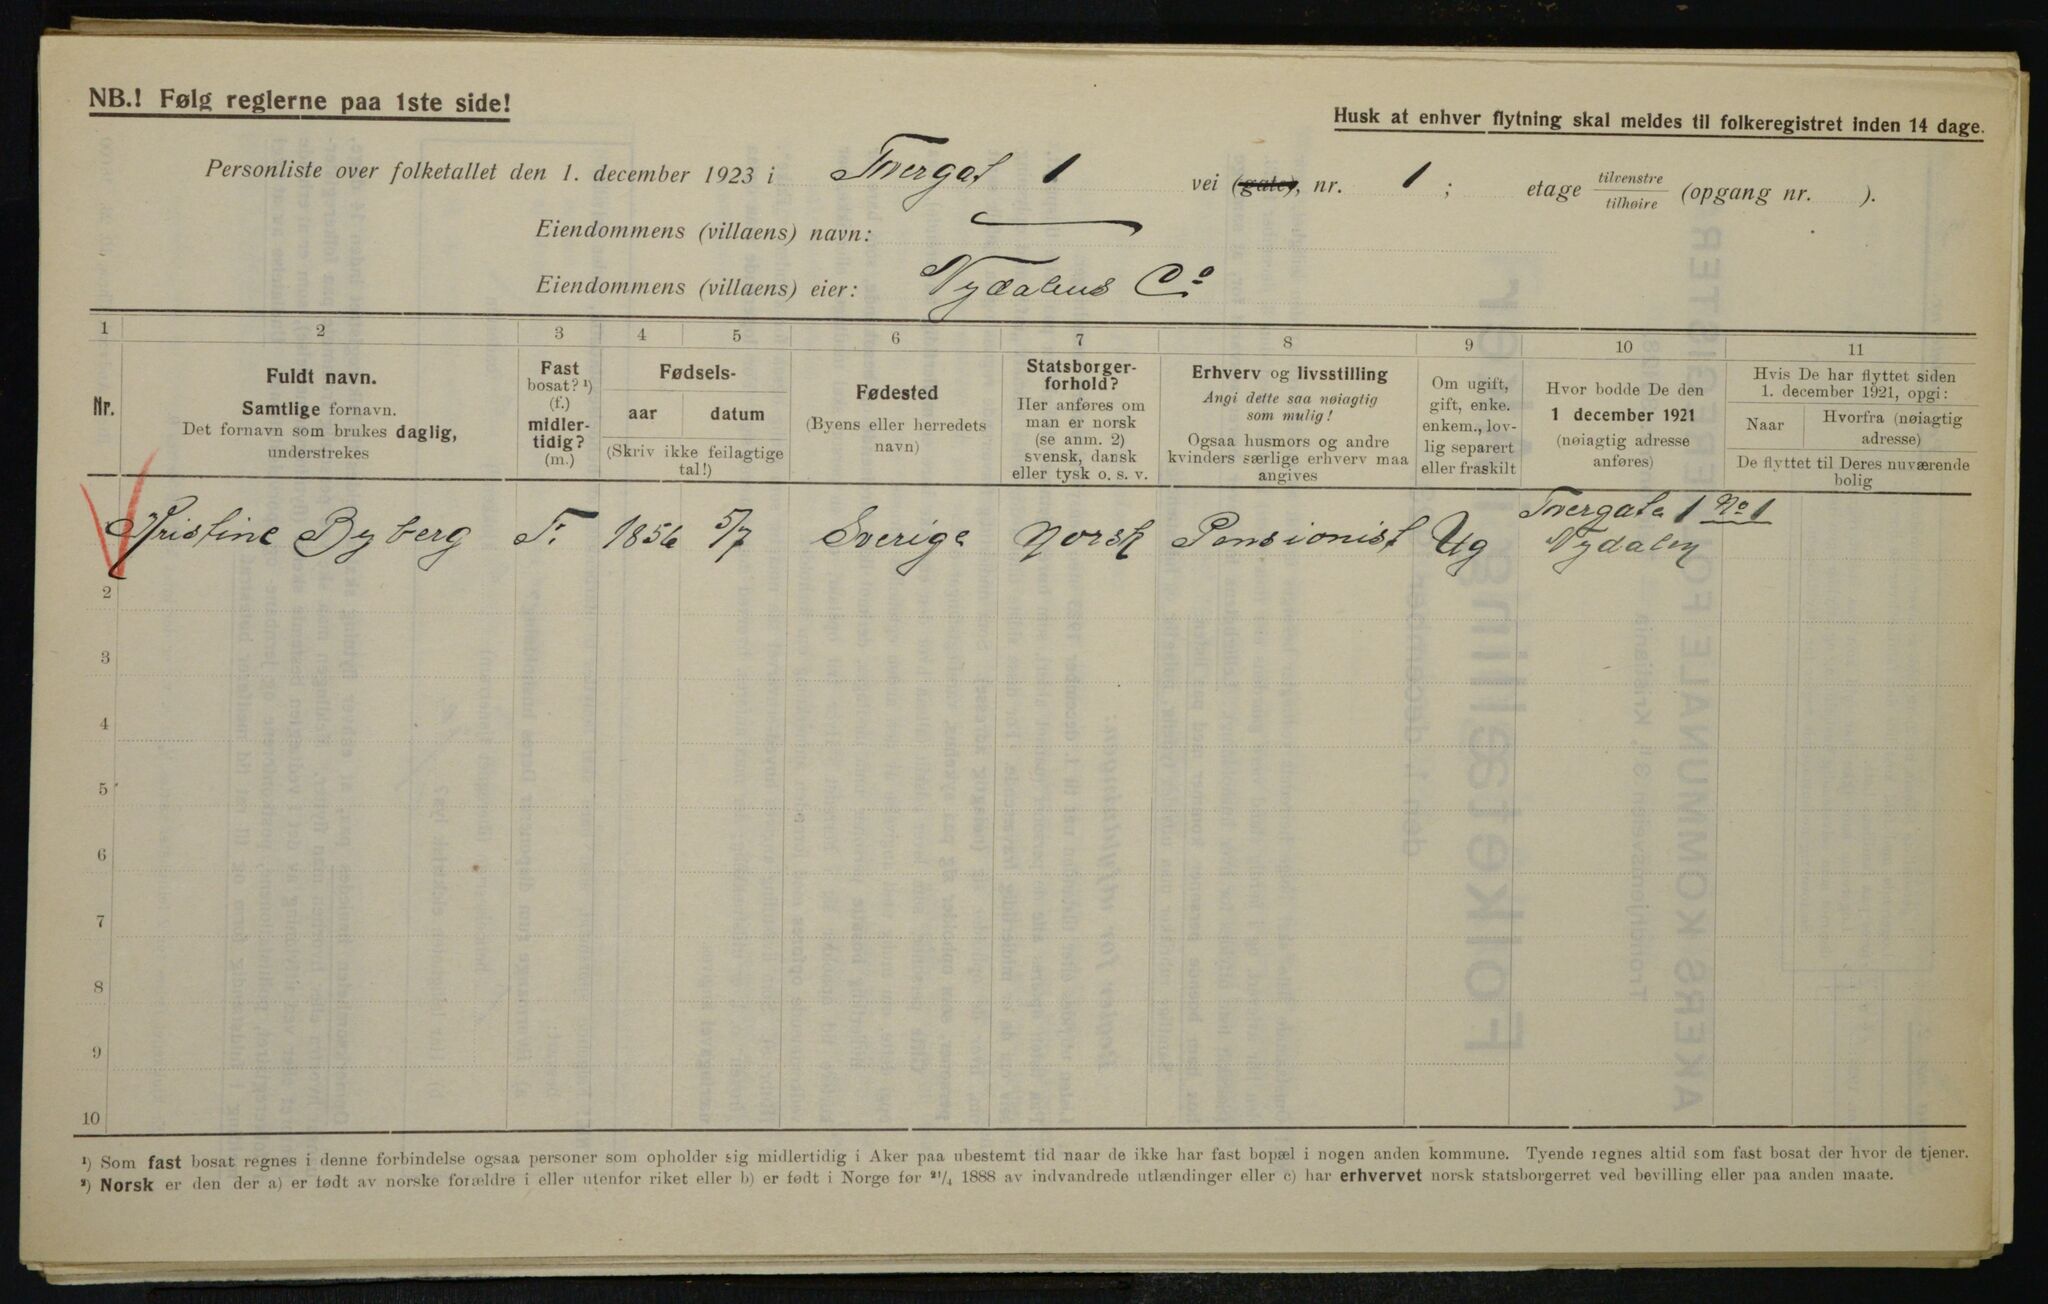 NB.! Følg reglerne paa 1ste side!
Husk at enhver flytning skal meldes til folkeregistret inden 14 dage.
Personliste over folketallet den 1. december 1923 i Tvergat 1 vei (gate), nr. 1; etage tilvenstre tilhøire (opgang nr. ).
Eiendommens (villaens) navn:
Eiendommens (villaens) eier: Nydalens Co
1 2 3 4 5 6 7 8 9 10 11
Nr.
Fuldt navn.
Samtlige fornavn.
Det fornavn som brukes daglig,
understrekes
Fast
bosat? ¹)
(f.)
midler-
tidig?
(m.)
Fødsels-
aar datum
(Skriv ikke feilagtige
tal!)
Fødested
(Byens eller herredets
navn)
Statsborger-
forhold?
Her anføres om
man er norsk
(se anm. 2)
svensk, dansk
eller tysk o. s. v.
Erhverv og livsstilling
Angi dette saa nøiagtig
som mulig!
Ogsaa husmors og andre
kvinders særlige erhverv maa
angives
Om ugift,
gift, enke.
enkem., lov-
lig separert
eller fraskilt
Hvor bodde De den
1 december 1921
(nøiagtig adresse
anføres)
Hvis De har flyttet siden
1. december 1921, opgi:
Naar Hvorfra (nøiagtig
adresse)
De flyttet til Deres nuværende
bolig
Tvergata 1 No 1
Kristine Byberg F. 1856 5/7 Sverige Norsk Pensionist Ug Nydalen
2
3
4
5
6
7
8
9
10
¹) Som fast bosat regnes i denne forbindelse ogsaa personer som opholder sig midlertidig i Aker paa ubestemt tid naar de ikke har fast bopæl i nogen anden kommune. Tyende regnes altid som fast bosat der hvor de tjener.
²) Norsk er den der a) er født av norske forældre i eller utenfor riket eller b) er født i Norge før 21/4 1888 av indvandrede utlændinger eller c) har erhvervet norsk statsborgerret ved bevilling eller paa anden maate.